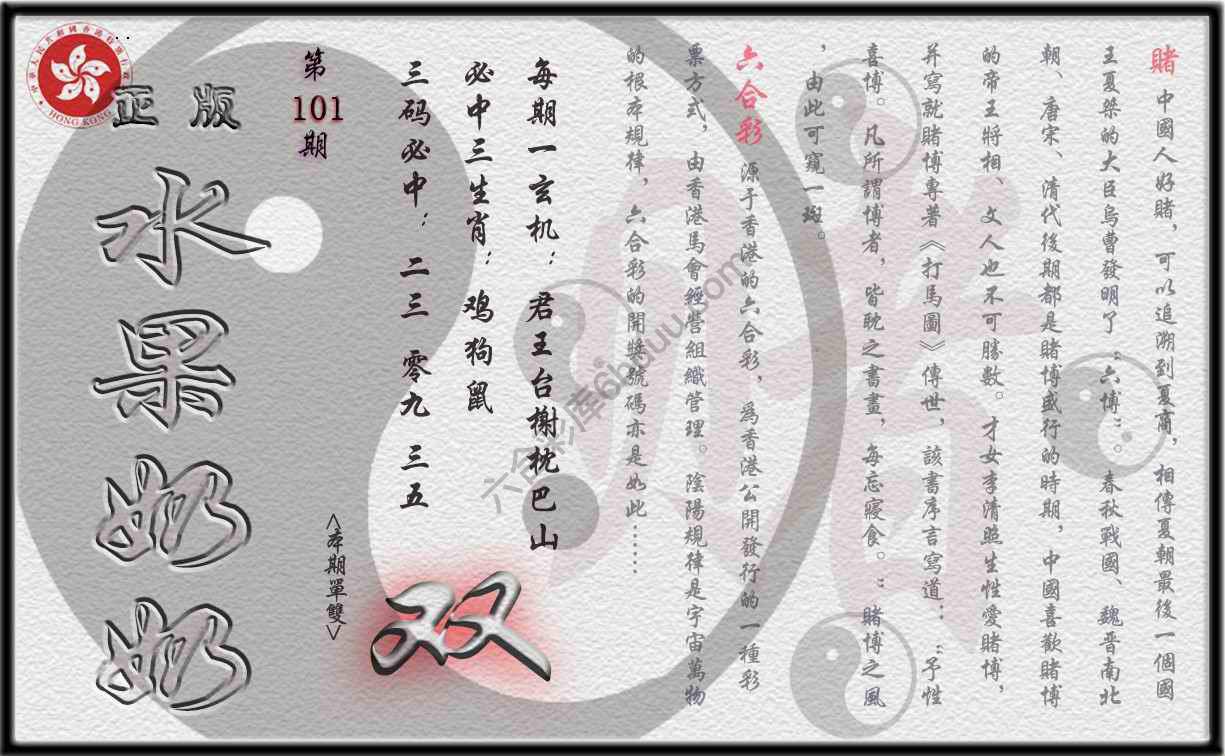 賭 中國人好賭，可以追溯到夏商，相傳夏朝最後一個國
王夏桀的大臣烏曹發明了“六博”。春秋戰國、魏晋南北
朝、唐宋、清代後期都是賭博盛行的時期，中國喜歡賭博
的帝王將相、文人也不可勝數。才女李清照生性愛賭博，
并寫就賭博專著《打馬圖》傳世，該書序言寫道：“予性
喜博。凡所謂博者，皆耽之晝晝，每忘寢食。”賭博之風
，由此可窺一斑。
六合彩 源于香港的六合彩，為香港公開發行的一種彩
票方式，由香港馬會經營組織管理。陰陽規律是宇宙萬物
的根本規律，六合彩的開獎號碼亦是如此……
每期一玄机：君王台榭枕巴山
必中三生肖：鸡狗鼠
三码必中：二三 零九 三五
<本期單雙>
双
第
101
期
正版
水果奶奶
HONG KONG
六合彩库6hduu.com